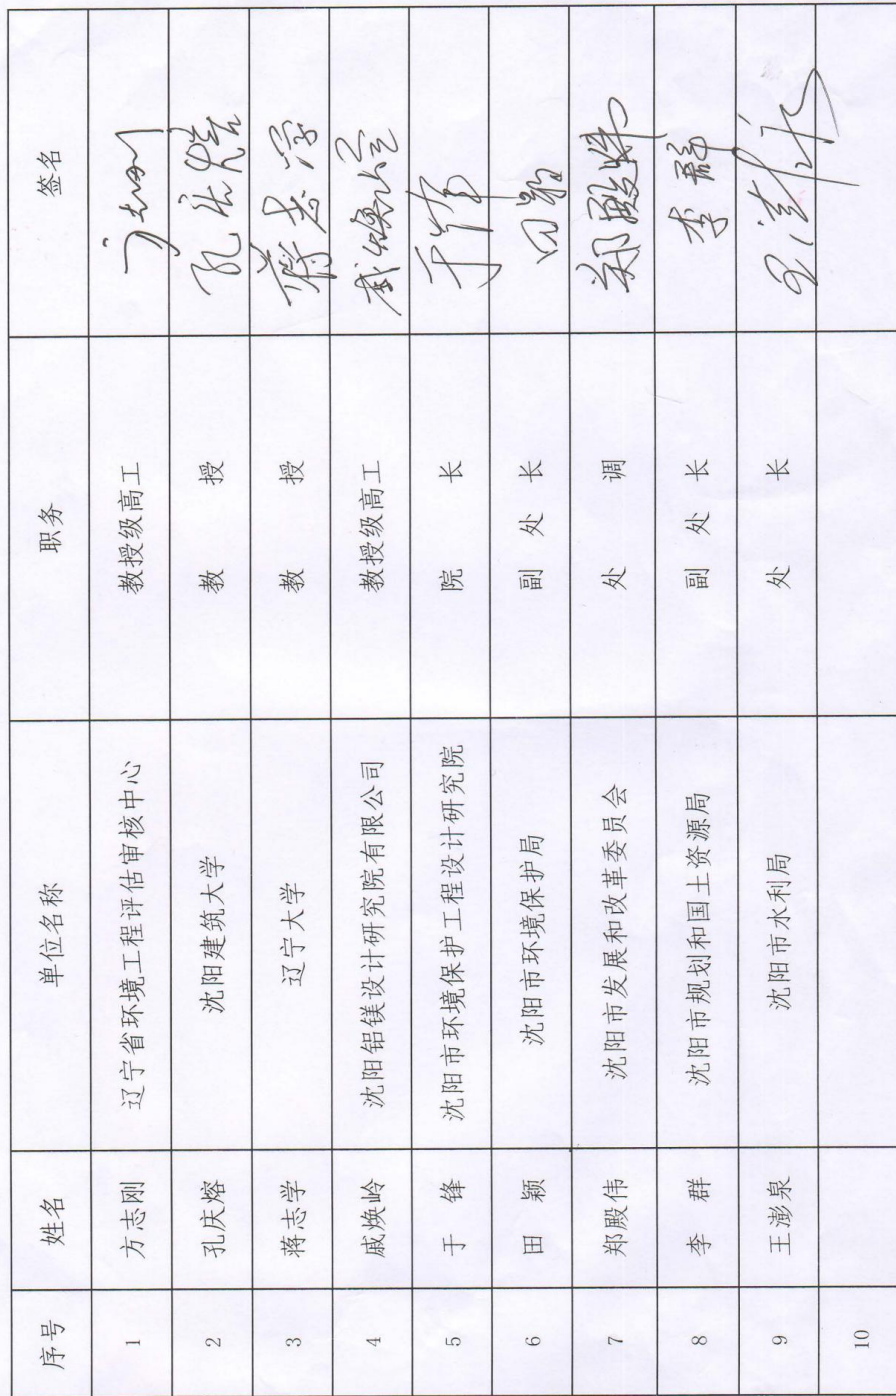 序号 姓名 单位名称 职务 签名
1 方志刚 辽宁省环境工程评估审核中心 教授级高工 方志刚
2 孔庆熔 沈阳建筑大学 教 授 孔庆熔
3 蒋志学 辽宁大学 教 授 蒋志学
4 戚焕岭 沈阳铝镁设计研究院有限公司 教授级高工 戚焕岭
5 于 锋 沈阳市环境保护工程设计研究院 院 长 于锋
6 田 颖 沈阳市环境保护局 副 处 长 田颖
7 郑殿伟 沈阳市发展和改革委员会 处 调 郑殿伟
8 李 群 沈阳市规划和国土资源局 副 处 长 李群
9 王澎泉 沈阳市水利局 处 长
10